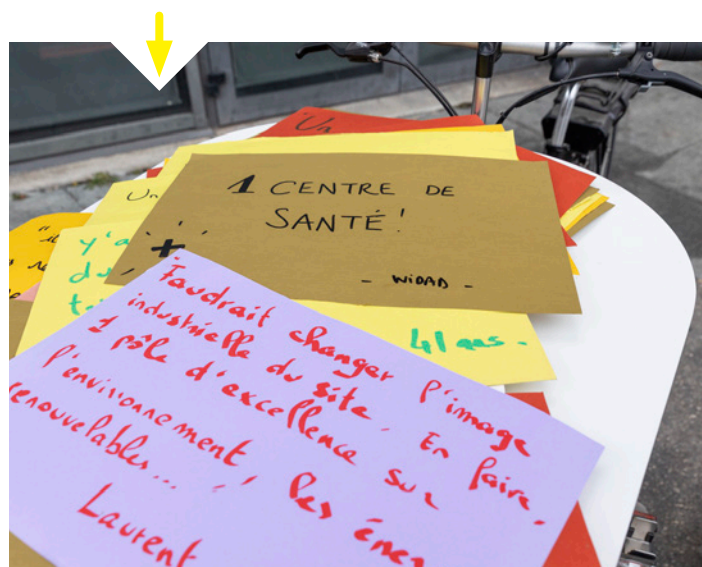 Un
Un
1 CENTRE DE
SANTÉ!
- WIDAD -
y'a
du
41 ans.
Faudrait changer l'image
industrielle du site. En faire,
1 pôle d'excellence sur
l'environnement, les éner
renouvelables...
Laurent